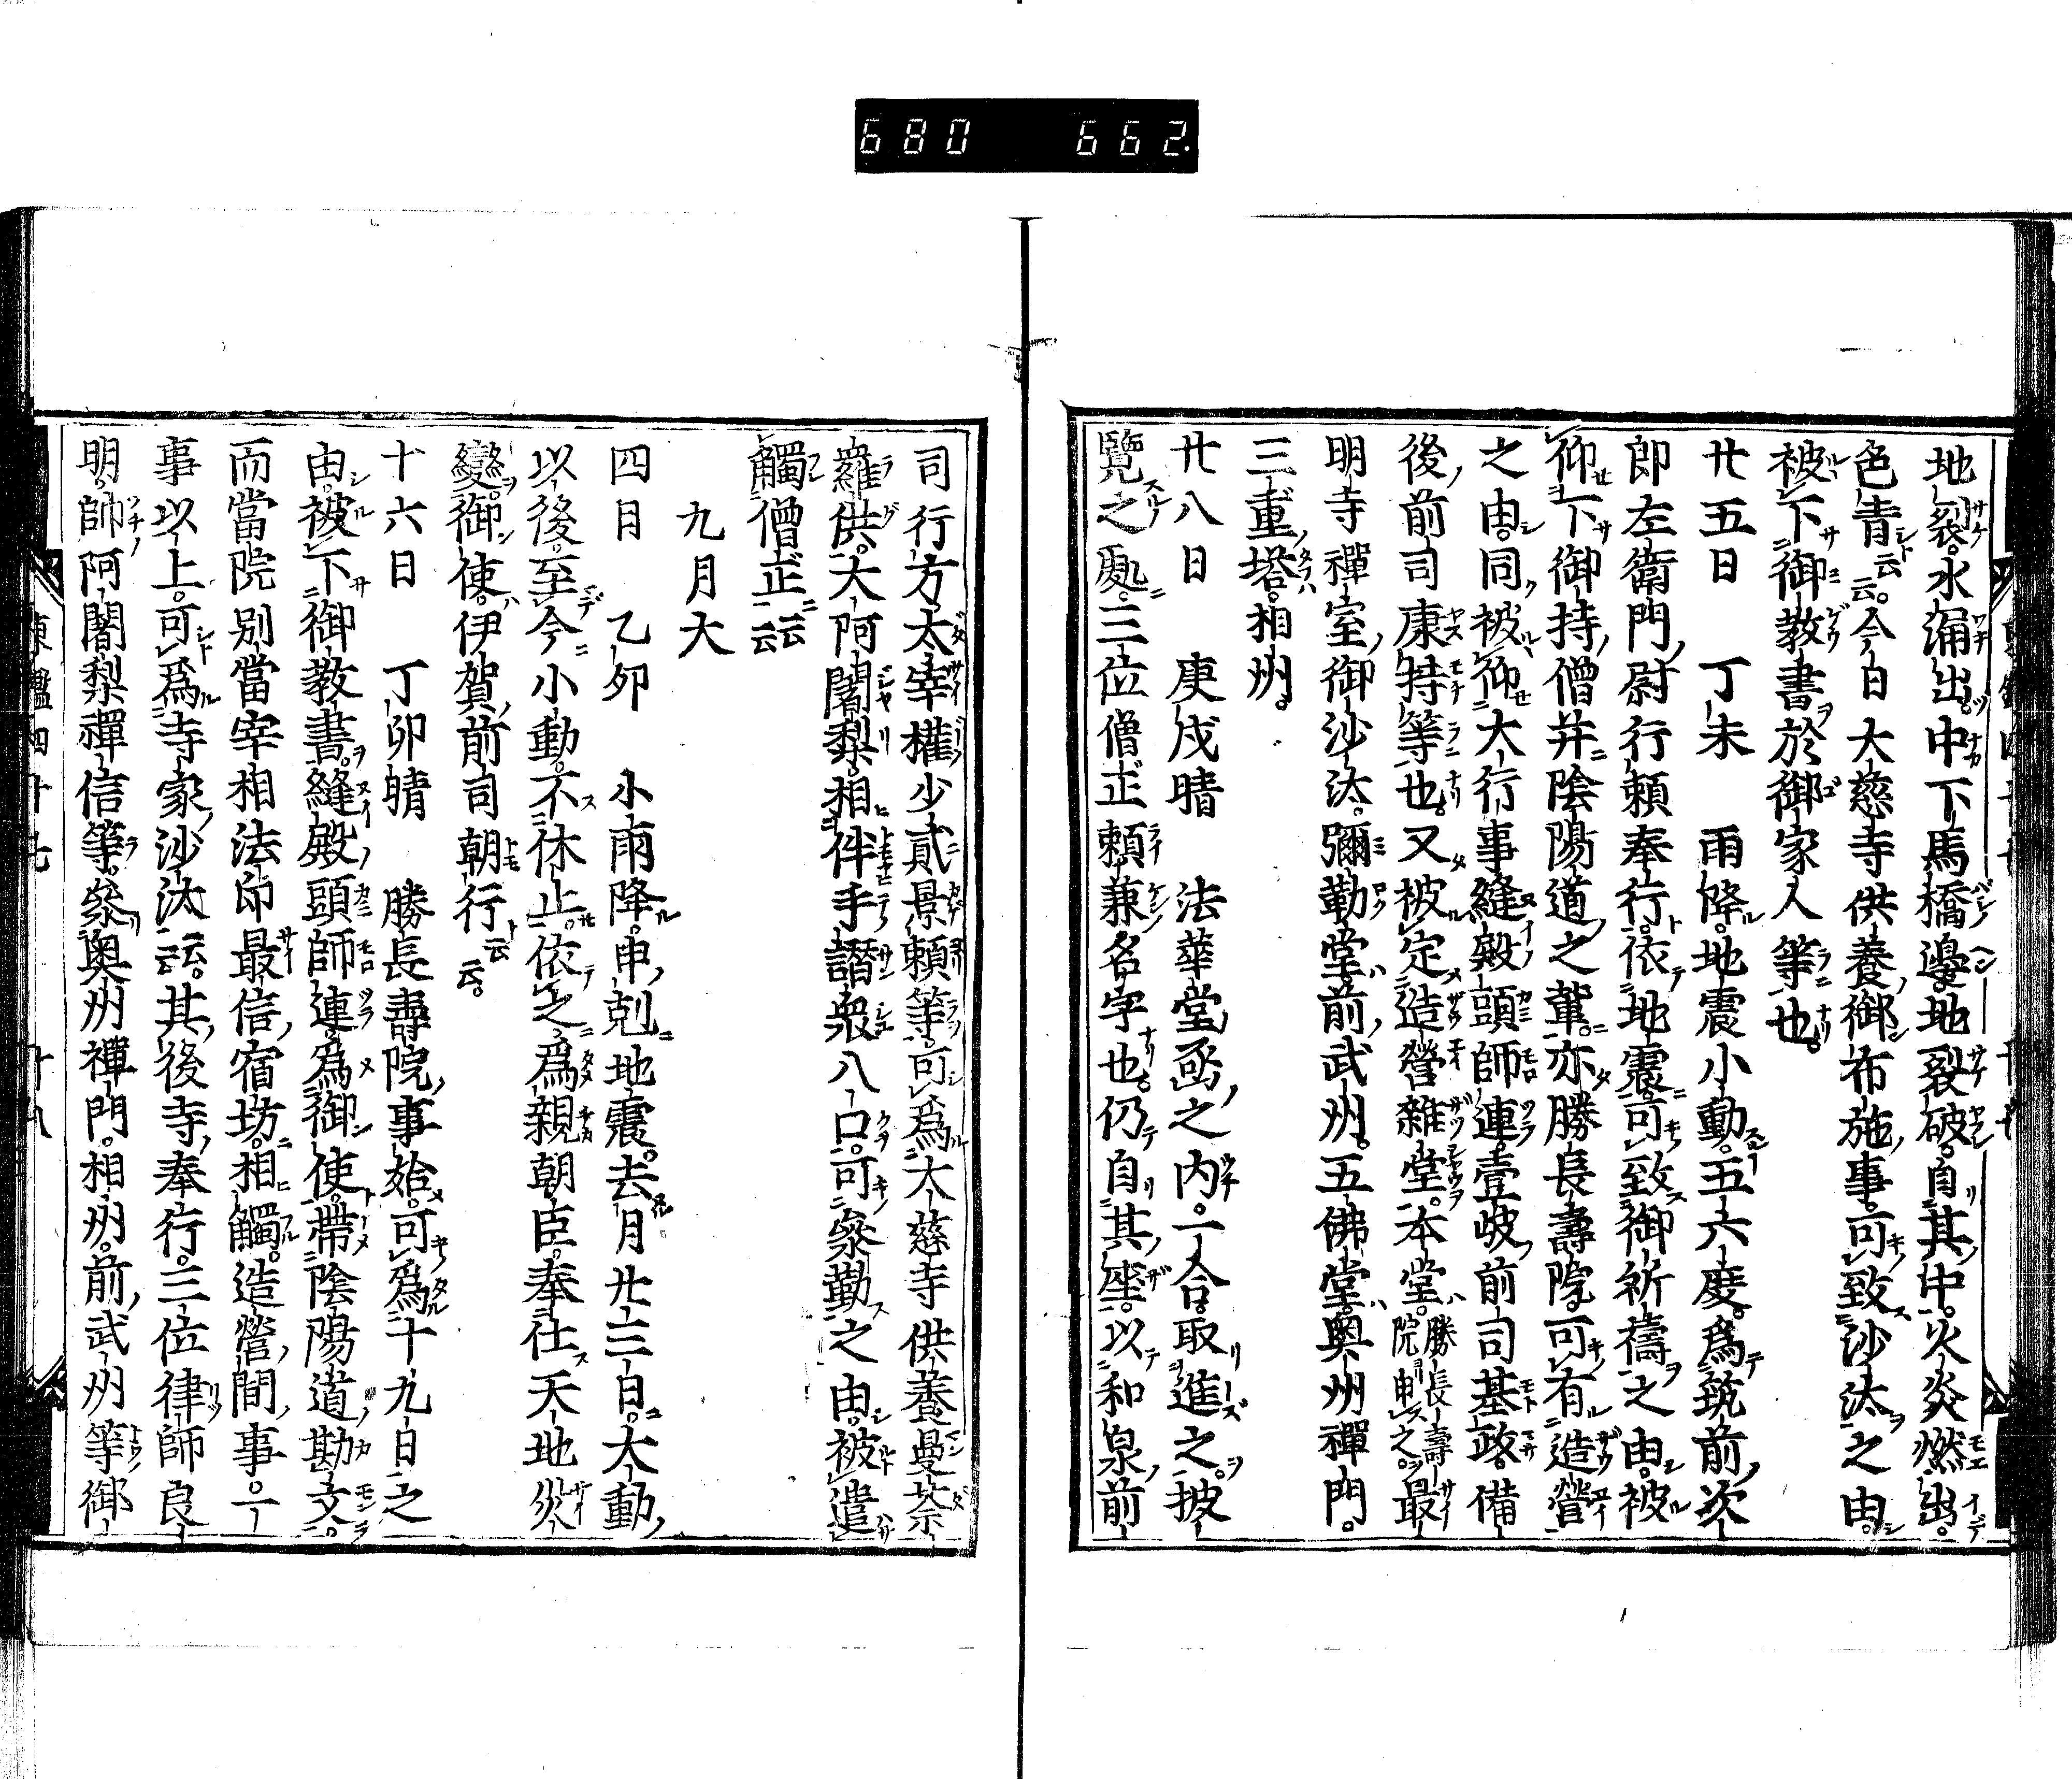 680 662.
地裂。水涌出。中下馬橋邊。地裂破。自其中。火炎燃出。
色青云云。今日大慈寺供養御布施事。可致沙汰之由。
被下御教書於御家人等也。
廿五日 丁未 雨降。地震小動。五六度。爲筑前次
郎左衛門尉行頼奉行。依地震。可致御祈禱之由。被
仰下御持僧并陰陽道之輩。亦勝長壽院。可有造營
之由。同被仰大行事縫殿頭師連。壹岐前司基政。備
後前司康持等也。又被定造營雜堂。本堂。勝長壽院申之。最
明寺禪室御沙汰。彌勒堂。前武州。五佛堂。奥州禪門。
三重塔。相州。
廿八日 庚戌晴 法華堂凾之内。一合。取進之。披
覽之處。三位僧正頼兼名字也。仍自其座。以和泉前
司行方太宰權少貳景頼等。可爲大慈寺供養曼荼
羅供。大阿闍梨。相伴手讃衆八口。可參勤之由。被遣
觸僧正云云
九月大
四日 乙夘 小雨降。申剋地震。去月廿三日。大動
以後。至今小動。不休止。依之。爲親朝臣。奉仕天地災
變。御使。伊賀前司朝行云云。
十六日 丁卯晴 勝長壽院事始。可爲十九日之
由。被下御教書。縫殿頭師連。爲御使。帶陰陽道勘文。
而當院別當宰相法印最信宿坊。相觸。造營間事。一
事以上。可爲寺家沙汰云云。其後寺奉行。三位律師良
明。師阿闍梨禪信等。參奥州禪門。相州。前武州等御
東鑑四十七 十八